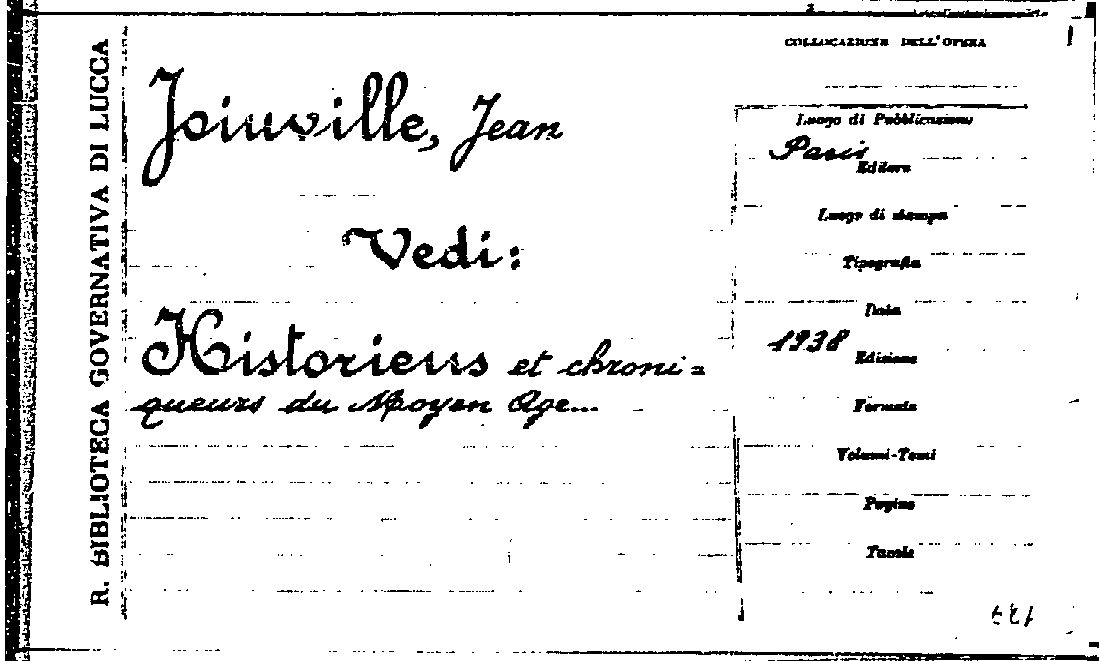 R. BIBLIOTECA GOVERNATIVA DI LUCCA
Joinville, Jean
Vedi:
Historiens et chroni=
queurs du Moyen Age...
COLLOCAZIONE DELL'OPERA
Luogo di Pubblicazione
Paris
Editore
Luogo di stampa
Tipografia
Data
1938
Edizione
Formato
Volumi-Tomi
Pagine
Tavole